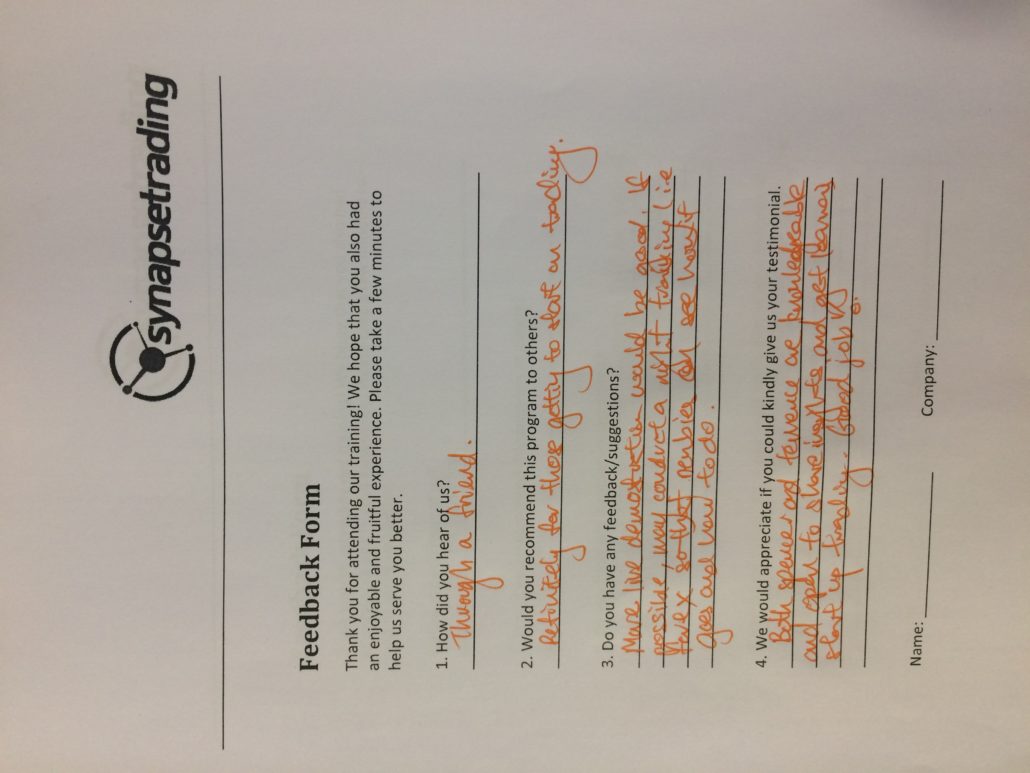 synapsetrading
Feedback Form
Thank you for attending our training! We hope that you also had
an enjoyable and fruitful experience. Please take a few minutes to
help us serve you better.
1. How did you hear of us?
Through a friend.
2. Would you recommend this program to others?
Definitely for those getting to start on trading.
3. Do you have any feedback/suggestions?
More live demonstration would be good. If
possible, may conduct a night trading i.e
forex so that newbies can see how it
goes and how to do.
4. We would appreciate if you could kindly give us your testimonial.
Both spencer and are knowledgeable
and open to share insights and get
start up trading. Good job
Name:
Company: